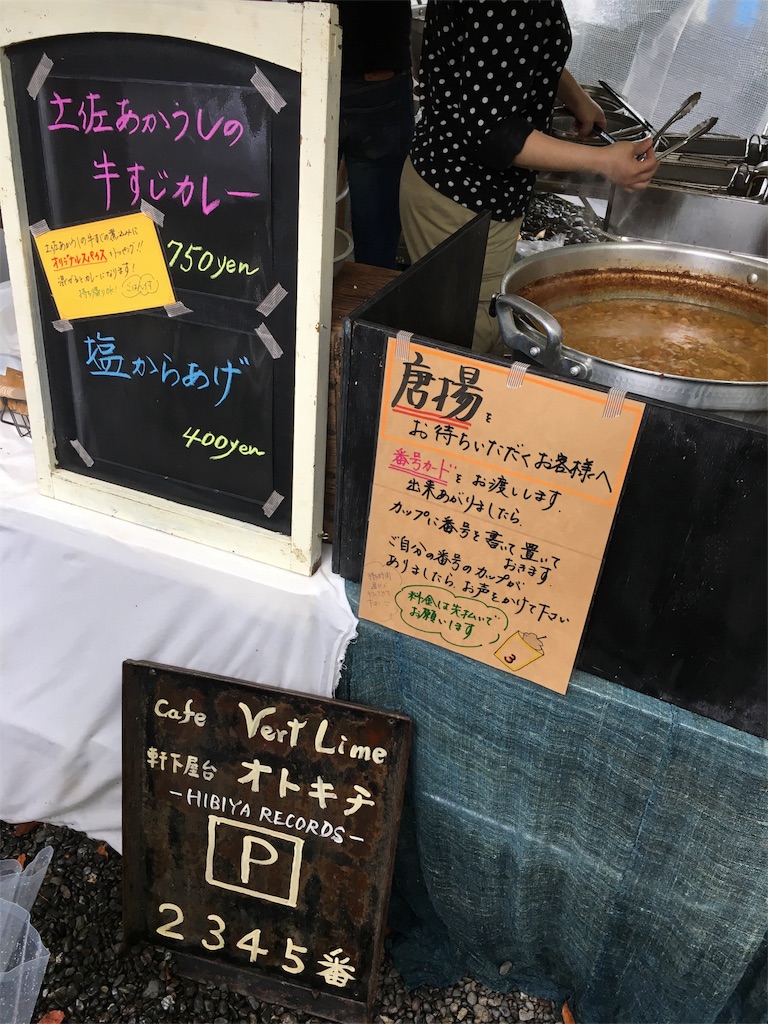 土佐あかうしの
牛すじカレー
750yen
土佐あかうしの牛すじの煮込みに
オリジナルスパイスをトッピング!!
混ぜるとカレーになります!
ごはん付
塩からあげ
400yen
唐揚を
お待ちいただくお客様へ
番号カードをお渡しします.
出来あがりましたら.
カップに番号を書いて置いて
おきます
ご自分の番号のカップが.
ありましたら.お声をかけて下さい
料金は先払いで
お願いします
3
Cafe Vert Lime
軒下屋台 オトキチ
-HIBIYA RECORDS-
P
2345番